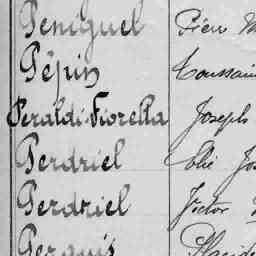 Peniguel Pierr M
Pépin Toussain
Peraldi-Fiorella Joseph
Perdriel Elie Jos
Perdriel Victor
Perguis Placide